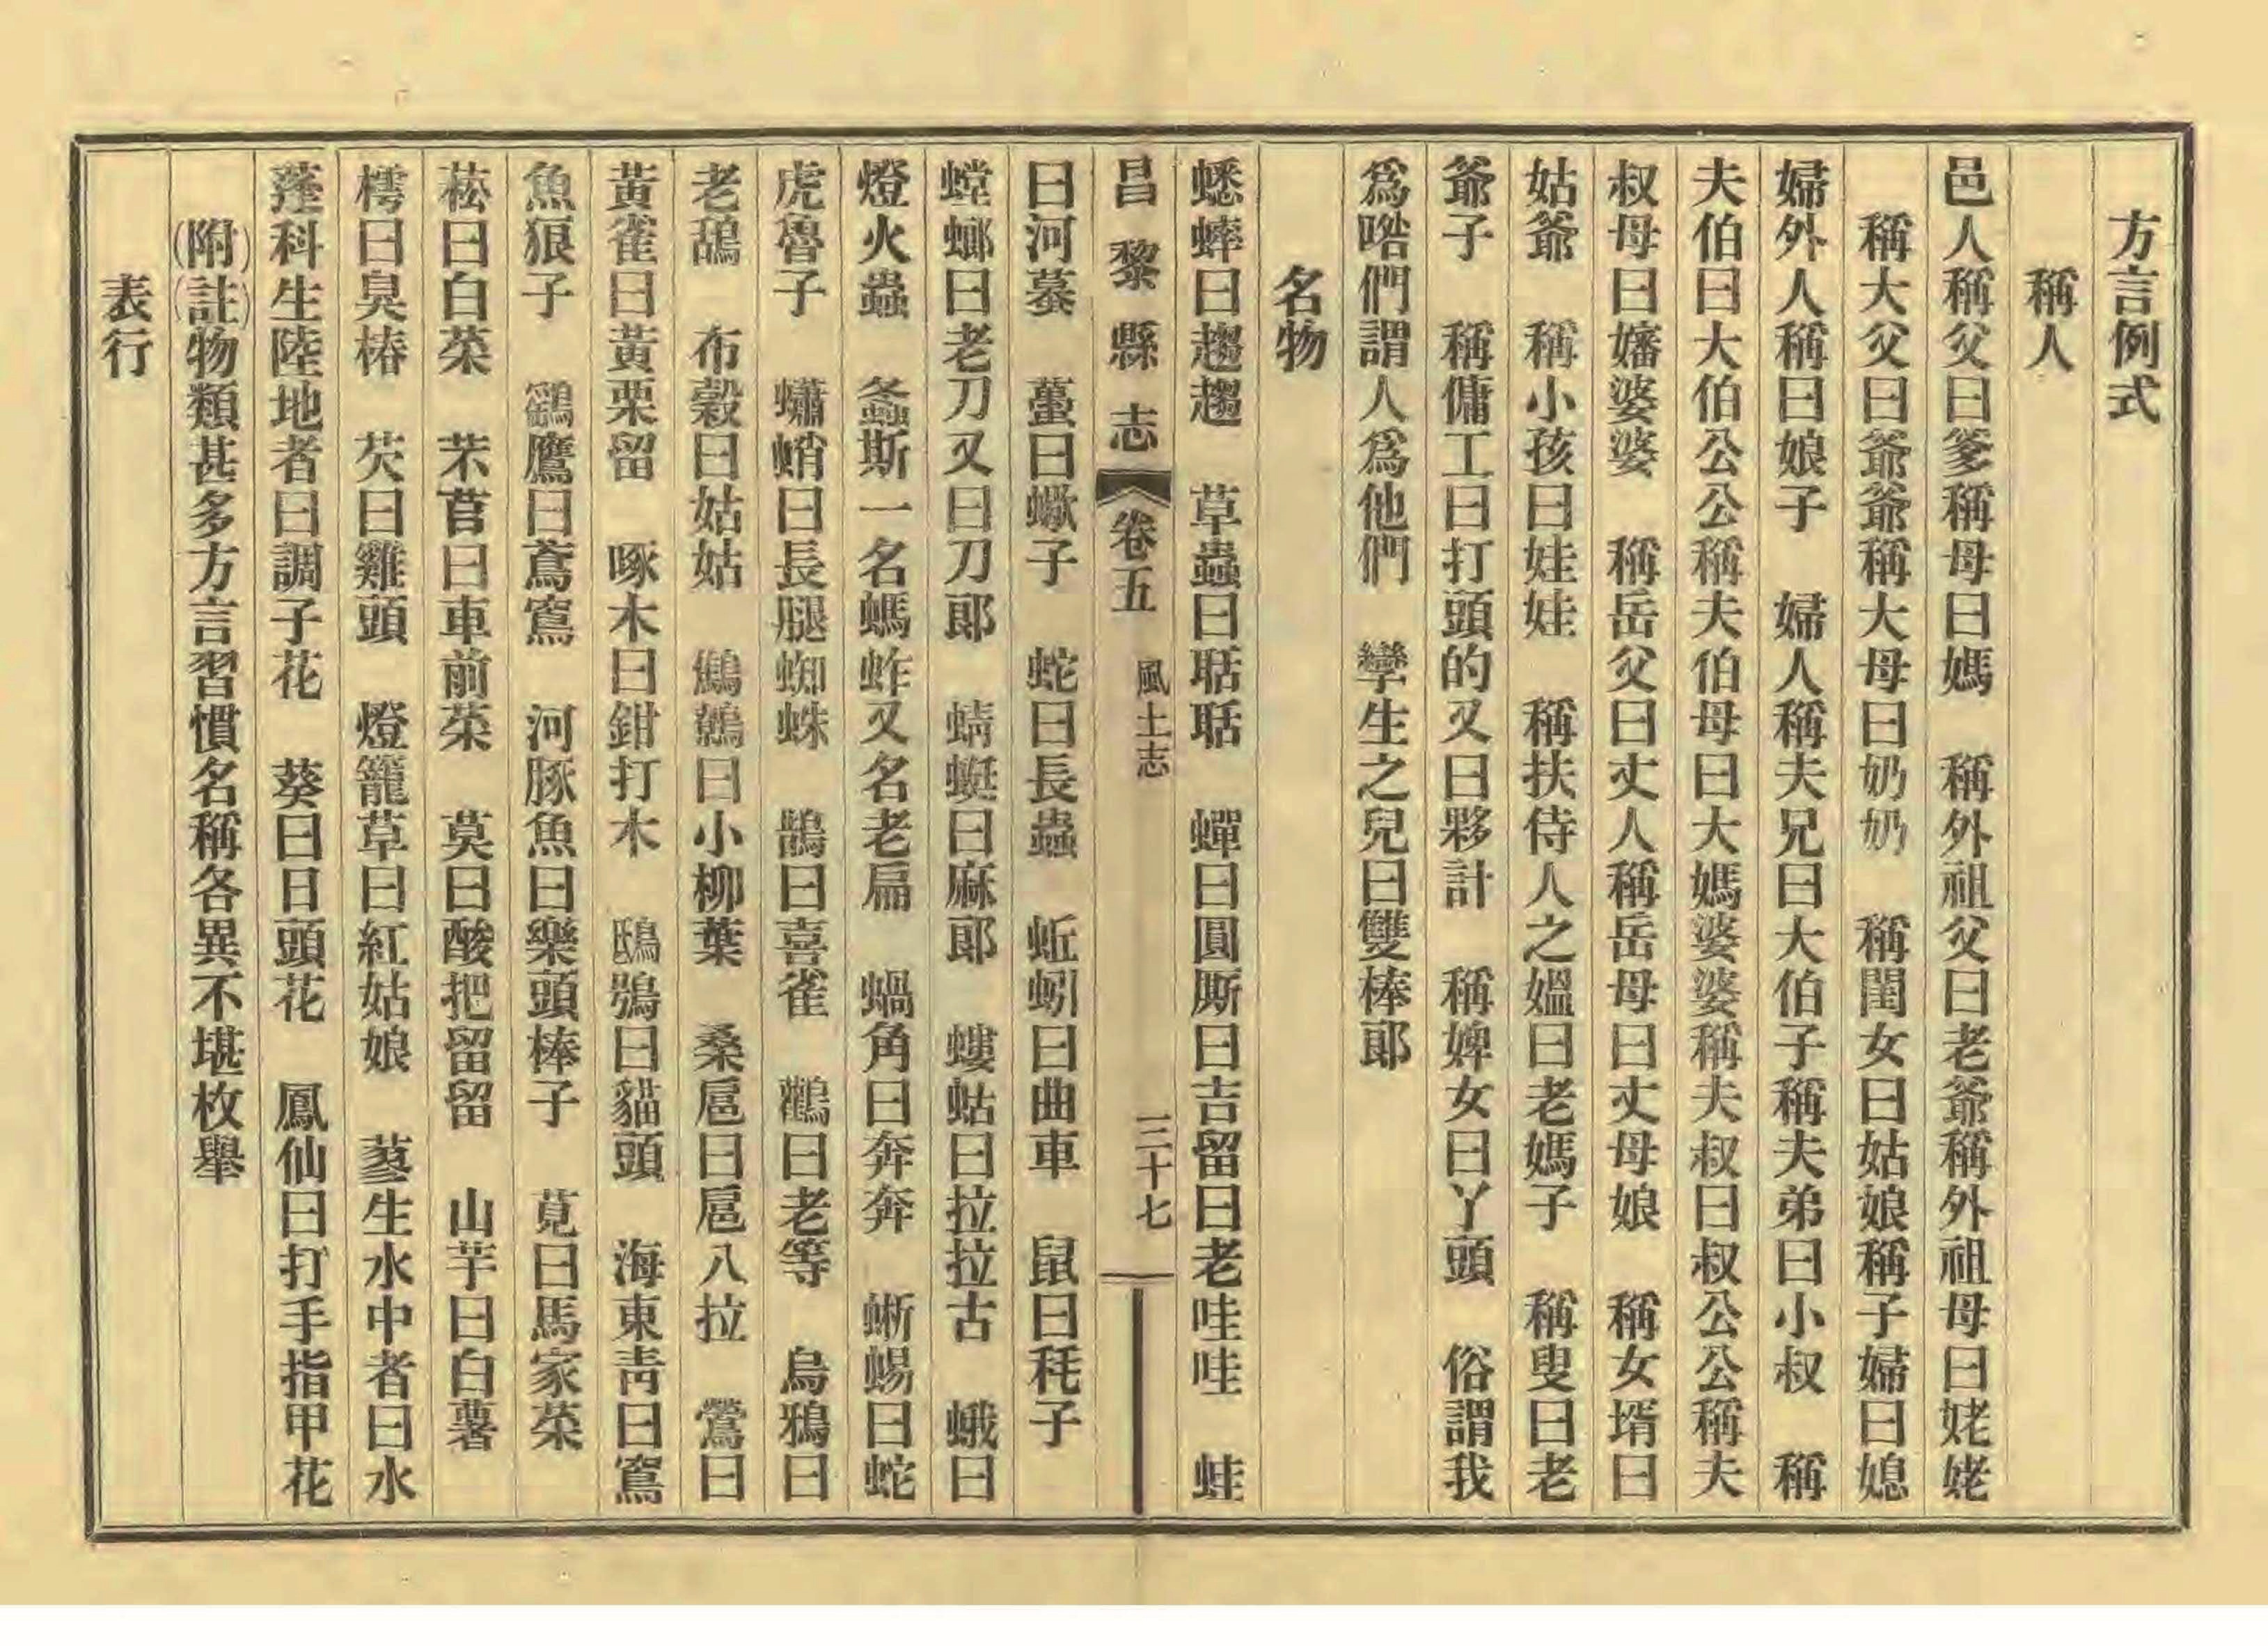 方言例式
稱人
邑人稱父曰爹稱母曰媽　稱外祖父曰老爺稱外祖母曰姥姥
稱大父曰爺爺稱大母曰奶奶　稱閨女曰姑娘稱子婦曰媳
婦外人稱曰娘子　婦人稱夫兄曰大伯子稱夫弟曰小叔　稱
夫伯曰大伯公公稱夫伯母曰大媽婆婆稱夫叔曰叔公公稱夫
叔母曰嬸婆婆　稱岳父曰丈人稱岳母曰丈母娘　稱女壻曰
姑爺　稱小孩曰娃娃　稱扶侍人之媼曰老媽子　稱叟曰老
爺子　稱傭工曰打頭的又曰夥計　稱婢女曰丫頭　俗謂我
爲喒們謂人爲他們　孿生之兒曰雙棒郎
名物
蟋蟀曰趨趨　草蟲曰聒聒　蟬曰圓厮曰吉留曰老哇哇　蛙
昌黎縣志　卷五　風土志　三十七
曰河蟇　蠆曰蠍子　蛇曰長蟲　蚯蚓曰曲車　鼠曰耗子
螳螂曰老刀又曰刀郞　蜻蜓曰麻郞　螻蛄曰拉拉古　蛾曰
燈火蟲　螽斯一名螞蚱又名老扁　蝸角曰奔奔　蜥蜴曰蛇
虎魯子　蠨蛸曰長腿蜘蛛　鵲曰喜雀　鸛曰老等　烏鴉曰
老鴰　布穀曰姑姑　鷦鷯曰小柳葉　桑扈曰扈八拉　鶯曰
黃雀曰黃栗留　啄木曰鉗打木　鴟鴞曰貓頭　海東靑曰窵
魚狼子　鸕鷹曰鳶窵　河豚魚曰樂頭棒子　莧曰馬家菜
菘曰白菜　芣苢曰車前菜　莫曰酸把留留　山芋曰白薯
樗曰臭椿　芡曰雞頭　燈籠草曰紅姑娘　蓼生水中者曰水
蓬科生陸地者曰調子花　葵曰日頭花　鳳仙曰打手指甲花
(附)(註)物類甚多方言習慣名稱各異不堪枚舉
表行